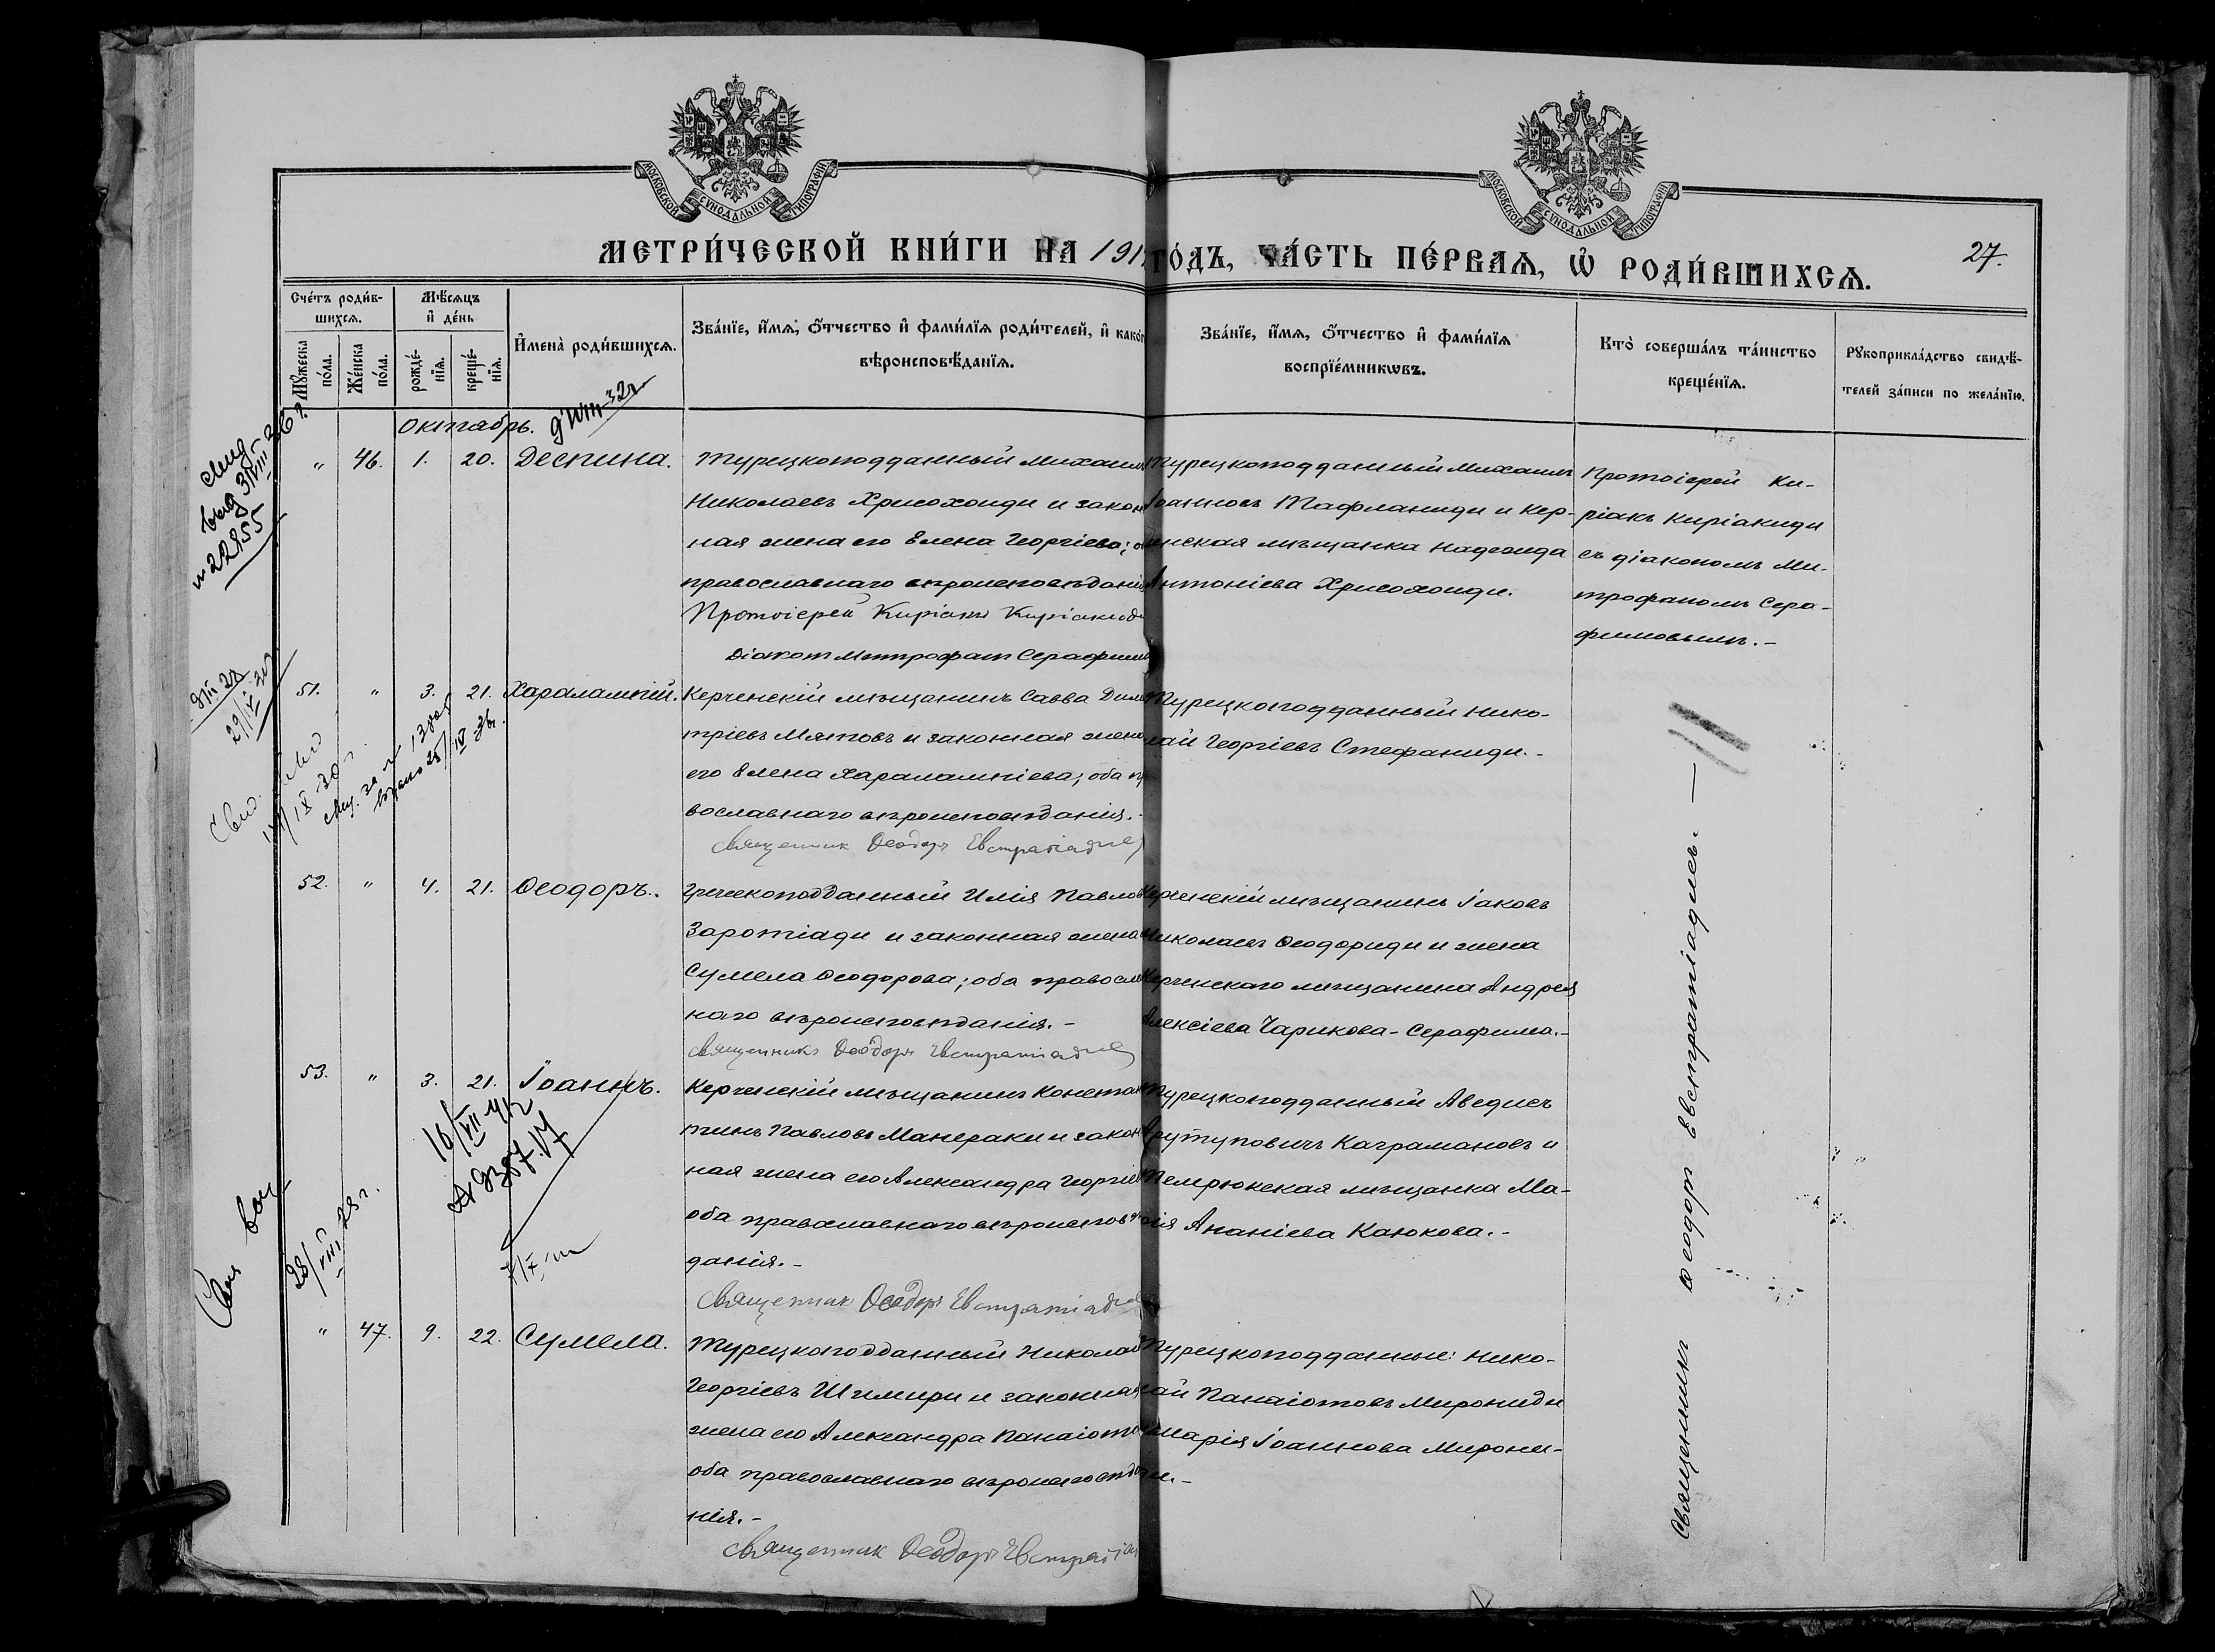 МОСКОВСКОЙ СѴНОДАЛЬНОЙ ТИПОГРАФІИ
МОСКОВСКОЙ СѴНОДАЛЬНОЙ ТИПОГРАФІИ
МЕТРИ́ЧЕСКОЙ КНИ́ГИ НА 191
ГО́ДЪ, ЧА́СТЬ ПЕ́РВАѦ, Ѡ҆ РОДИ́ВШИХСѦ.
27.
Сче́тъ роди́в-
шихсѧ.
Мꙋ́жеска
по́ла.
Же́нска
по́ла.
Мѣ́сѧцъ
и҆ де́нь
рожде́-
нїѧ.
креще́-
нїѧ.
И҆мена̀ роди́вшихсѧ.
Зва́нїе, и҆́мѧ, ѻ҆́тчество и҆ фами́лїѧ роди́телей, и҆ како́г
вѣроисповѣ́данїѧ.
Зва́нїе, и҆́мѧ, ѻ҆́тчество и҆ фами́лїѧ
воспрїе́мникѡвъ.
Кто̀ соверша́лъ та́инство
креще́нїѧ.
Рꙋкоприкла́дство свидѣ́-
телей за́писи по жела́нїю.
Октябрь.
" 46. 1. 20. Деспина.
Турецкоподданный Михаил
Николаевъ Хрисохоиди и закон
ная жена его Елена Георгіева; о
православнаго вѣроисповѣданія
Протоіерей Киріакъ Киріакиди
Діакон Митрофан Серафимов
Турецкоподданный Михаилъ
Іоанновъ Тафланиди и Кер-
ченская мѣщанка Надежда
Антоніева Хрисохоиди.
Протоіерей Ки-
ріакъ Киріакиди
съ діакономъ Ми-
трофаномъ Сера-
фимовымъ.-
№ 22855
51. " 3. 21. Харалампій.
Керченскій мѣщанинъ Савва Дими
тріевъ Мятовъ и законная жена
его Елена Харалампіева; оба п
вославнаго вѣроисповѣданія.-
Священник Ѳеодоръ Евстратіадис
Турецкоподданный Нико-
лай Георгіевъ Стефаниди.-
52. " 4. 21. Ѳеодоръ.
Греческоподданный Илія Павлов
Заротіади и законная жена
Сумела Ѳеодорова; оба правосла
наго вѣроисповѣданія.-
Священникъ Ѳеодоръ Евстратіадис
Керченскій мѣщанинъ Іаковъ
Николаевъ Ѳеодориди и жена
Керченскаго мѣщанина Андрея
Алексіева Чарикова-Серафима.-
53. " 3. 21. Іоаннъ.
Керченскій мѣщанинъ Констан
тинъ Павловъ Манераки и закон
ная жена его Александра Георгіе
оба православнаго вѣроисповѣ
данія.-
Священник Ѳеодоръ Евстратіадис
Турецкоподданный Аведисъ
Арутуповичъ Каграмановъ и
Темрюкская мѣщанка Ма-
рія Ананіева Каюкова.-
28/VIII 28 г.
" 47. 9. 22. Сумела.
Турецкоподданный Николай
Георгіевъ Шимири и законная
жена его Александра Панаіото
оба православнаго вѣроисповѣда
нія.-
Священник Ѳеодоръ Евстратіа
Турецкоподданные: Нико-
лай Панаіотовъ Мирониди
Марія Іоаннова Мирони-
ди.-
Священникъ Ѳеодоръ Евстратіадисъ.-